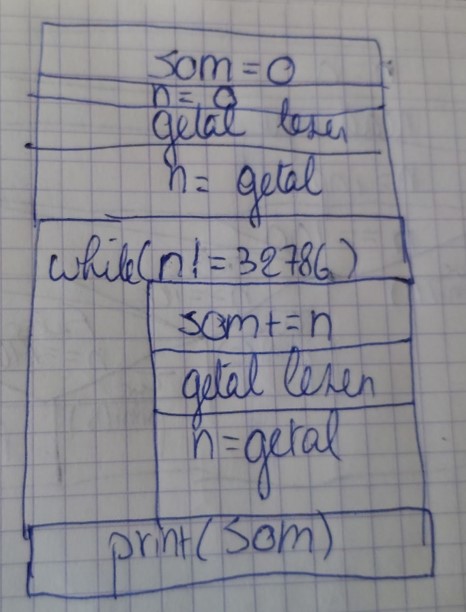 som = 0
n = 0
getal lezen
n = getal
while(n != 32786)
som += n
getal lezen
n = getal
print(som)